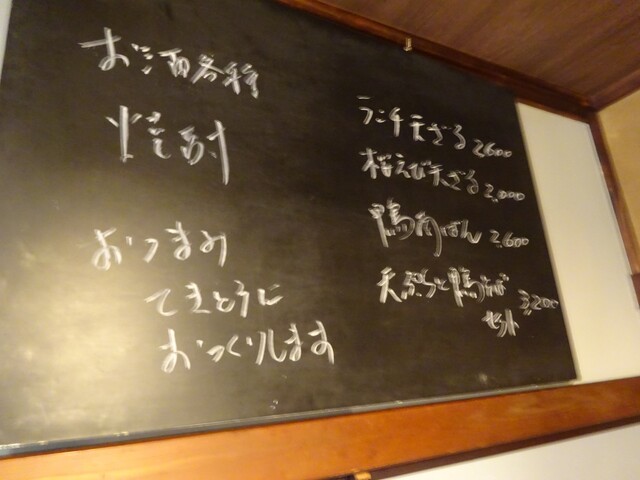 お酒各種
焼酎
おつまみ
てきとうに
おつくりします
ランチ天ざる 2,600
桜えび天ざる 2,000
鴨南ばん 2,600
天ぷらと鴨そば
セット 3,200